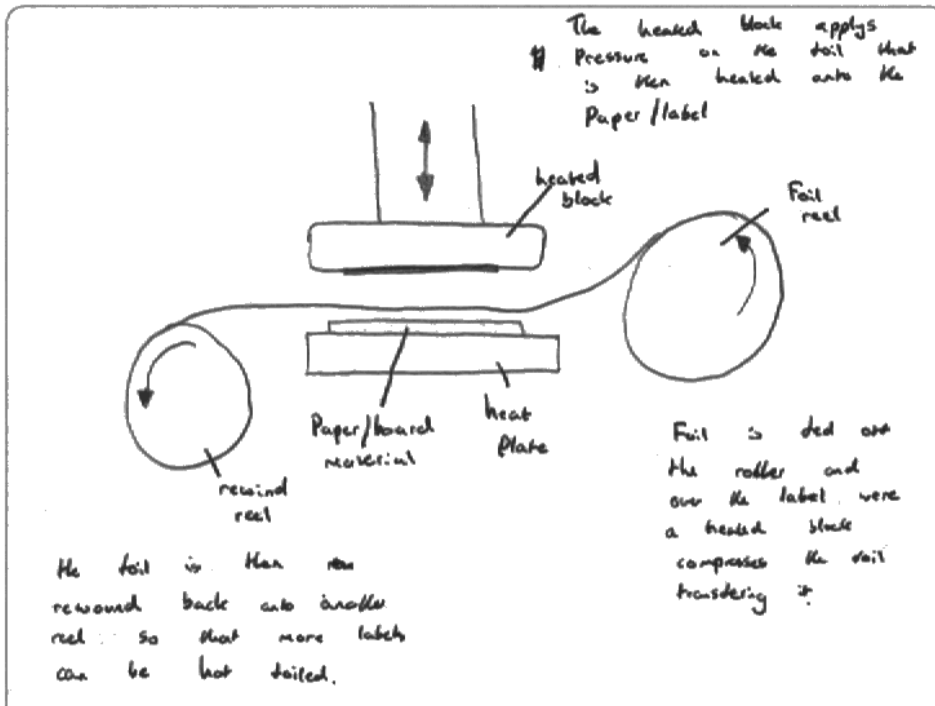 The heated block applys
Pressure on the foil that
is then heated onto the
Paper/label
heated
block
Foil
reel
Paper/board
material
heat
Plate
rewind
reel
Foil is fed off
the roller and
over the label were
a heated block
compresses the foil
transfering it.
the foil is then
rewound back onto another
reel so that more labels
can be hot foiled.